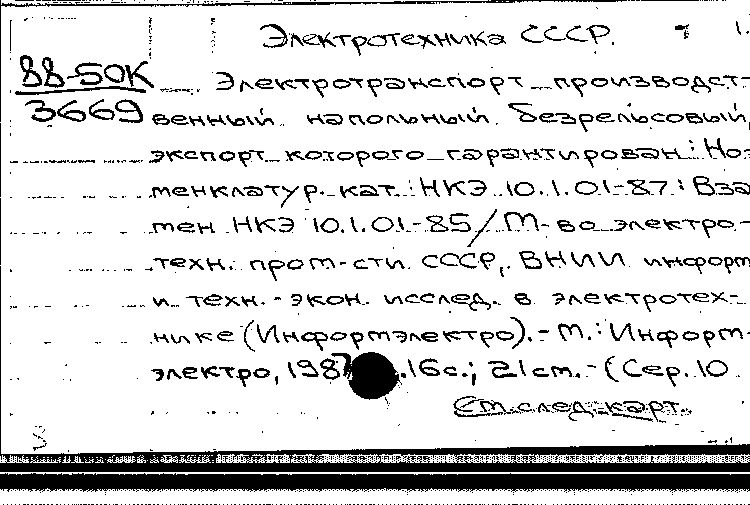 Электротехника СССР. 7 1.
88-50К
3669
Электротранспорт производст-
венный напольный безрельсовый,
экспорт которого гарантирован: Но-
менклатур. кат.: НКЭ 10.1.01-87: Вза-
мен НКЭ 10.1.01-85/М-во электро-
техн. пром-сти СССР, ВНИИ информ
и техн.-экон. исслед. в электротех-
нике (Информэлектро).- М.: Информ-
электро, 1987. 16с.; 21см.- (Сер. 10
См. след. карт.
3